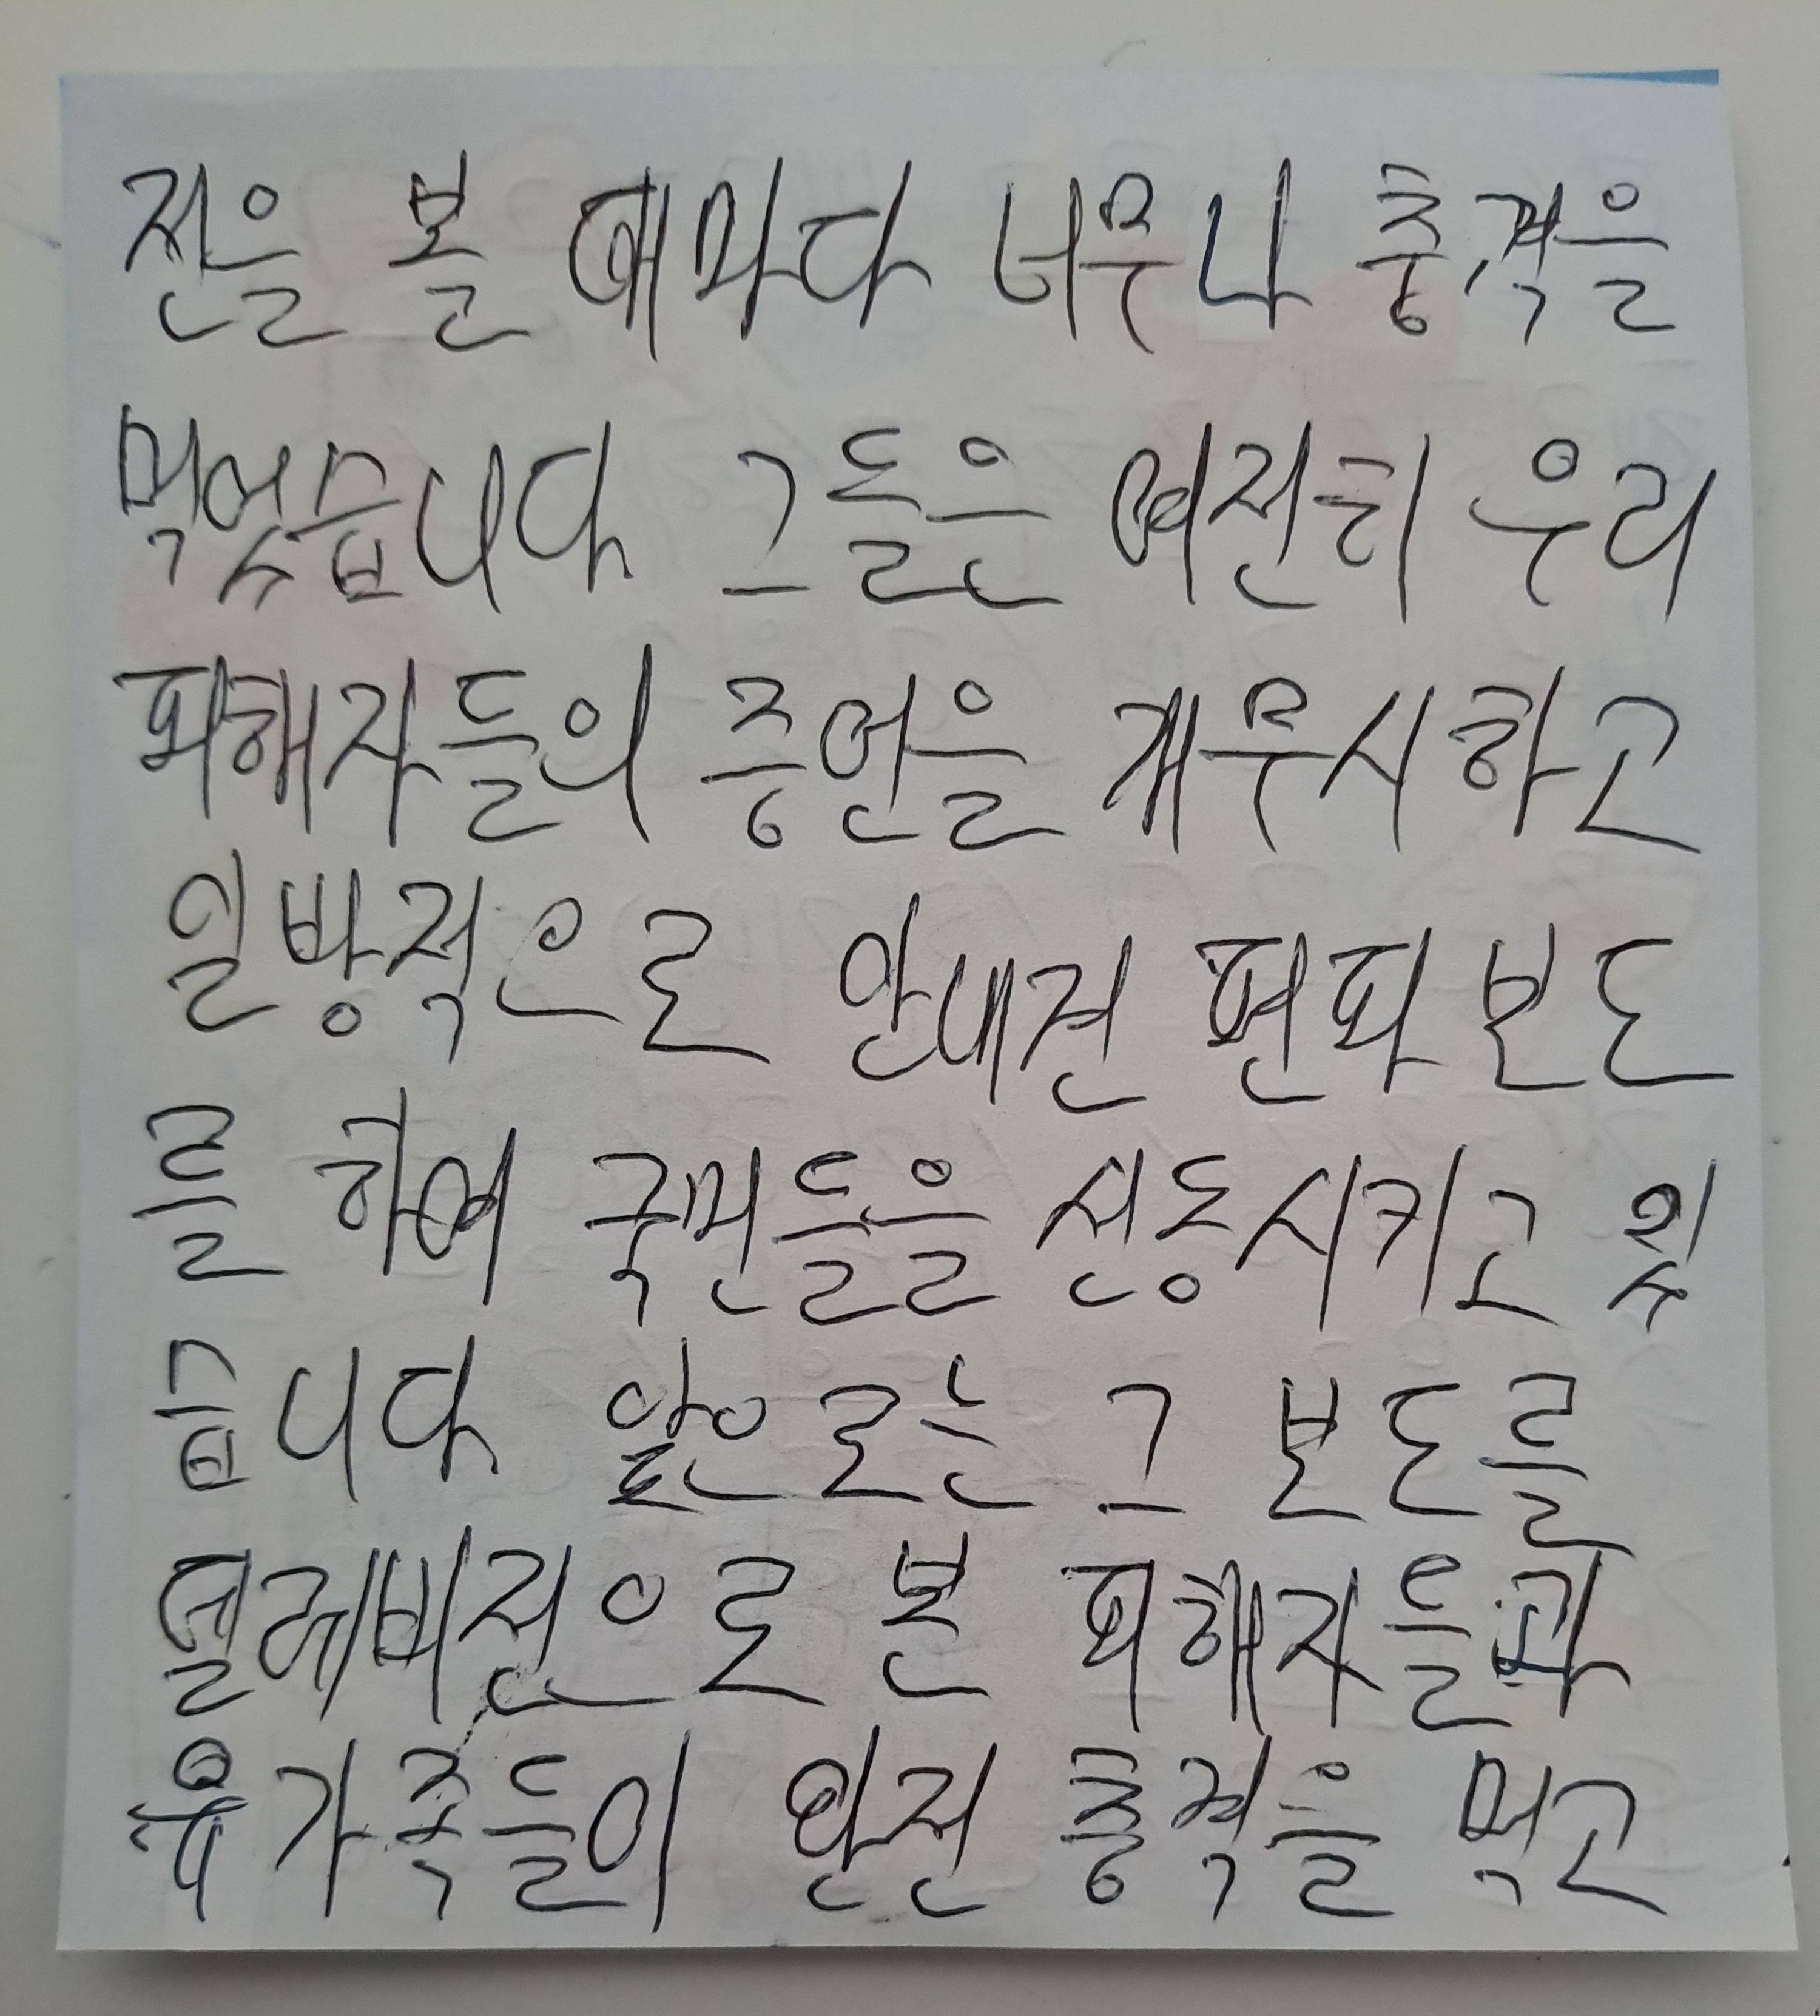 전을 볼 때마다 너무나 충격을
먹었습니다 그들은 여전히 우리
피해자들의 증언을 개무시하고
일방적으로 안내전 편파 보도
를 하여 국민들을 선동시키고 있
습니다 앞으로는 그 보도를
텔레비전으로 본 피해자들과
유가족들이 완전 충격을 먹고